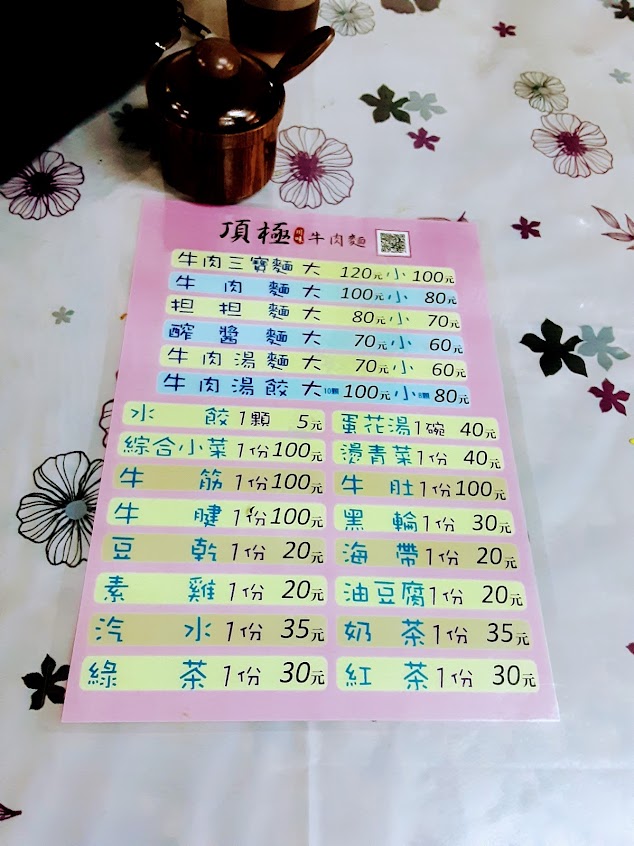 頂極 川味 牛肉麵
牛肉三寶麵 大 120元 小 100元
牛肉麵 大 100元 小 80元
担担麵 大 80元 小 70元
醡醬麵 大 70元 小 60元
牛肉湯麵 大 70元 小 60元
牛肉湯餃 大10顆 100元 小8顆 80元
水餃 1顆 5元 蛋花湯 1碗 40元
綜合小菜 1份 100元 燙青菜 1份 40元
牛筋 1份 100元 牛肚 1份 100元
牛腱 1份 100元 黑輪 1份 30元
豆乾 1份 20元 海帶 1份 20元
素雞 1份 20元 油豆腐 1份 20元
汽水 1份 35元 奶茶 1份 35元
綠茶 1份 30元 紅茶 1份 30元